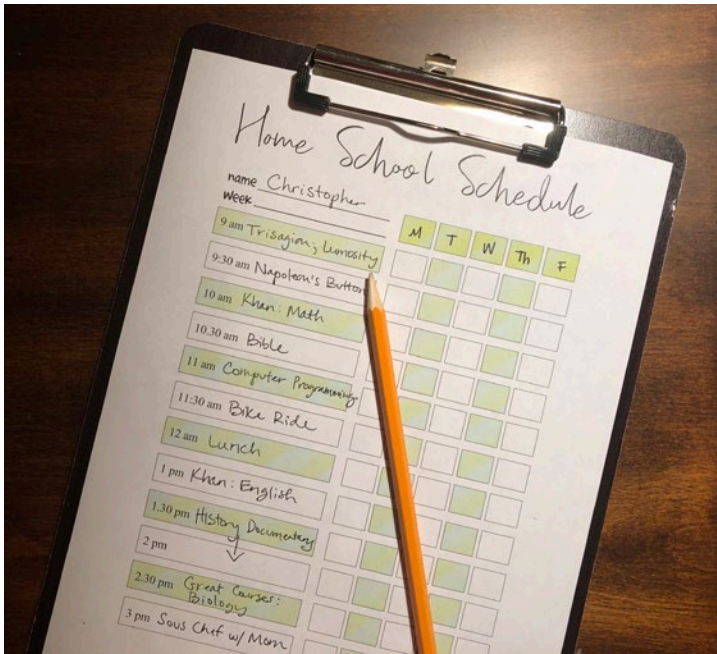 Home School Schedule
name Christopher
week
M T W Th F
9 am Trisagion; Lumosity
9:30 am Napoleon's Button
10 am Khan: Math
10.30 am Bible
11 am Computer Programming
11:30 am Bike Ride
12 am Lunch
1 pm Khan: English
1.30 pm History Documentary
2 pm
2.30 pm Great Courses:
Biology
3 pm Sous Chef w/ Mom